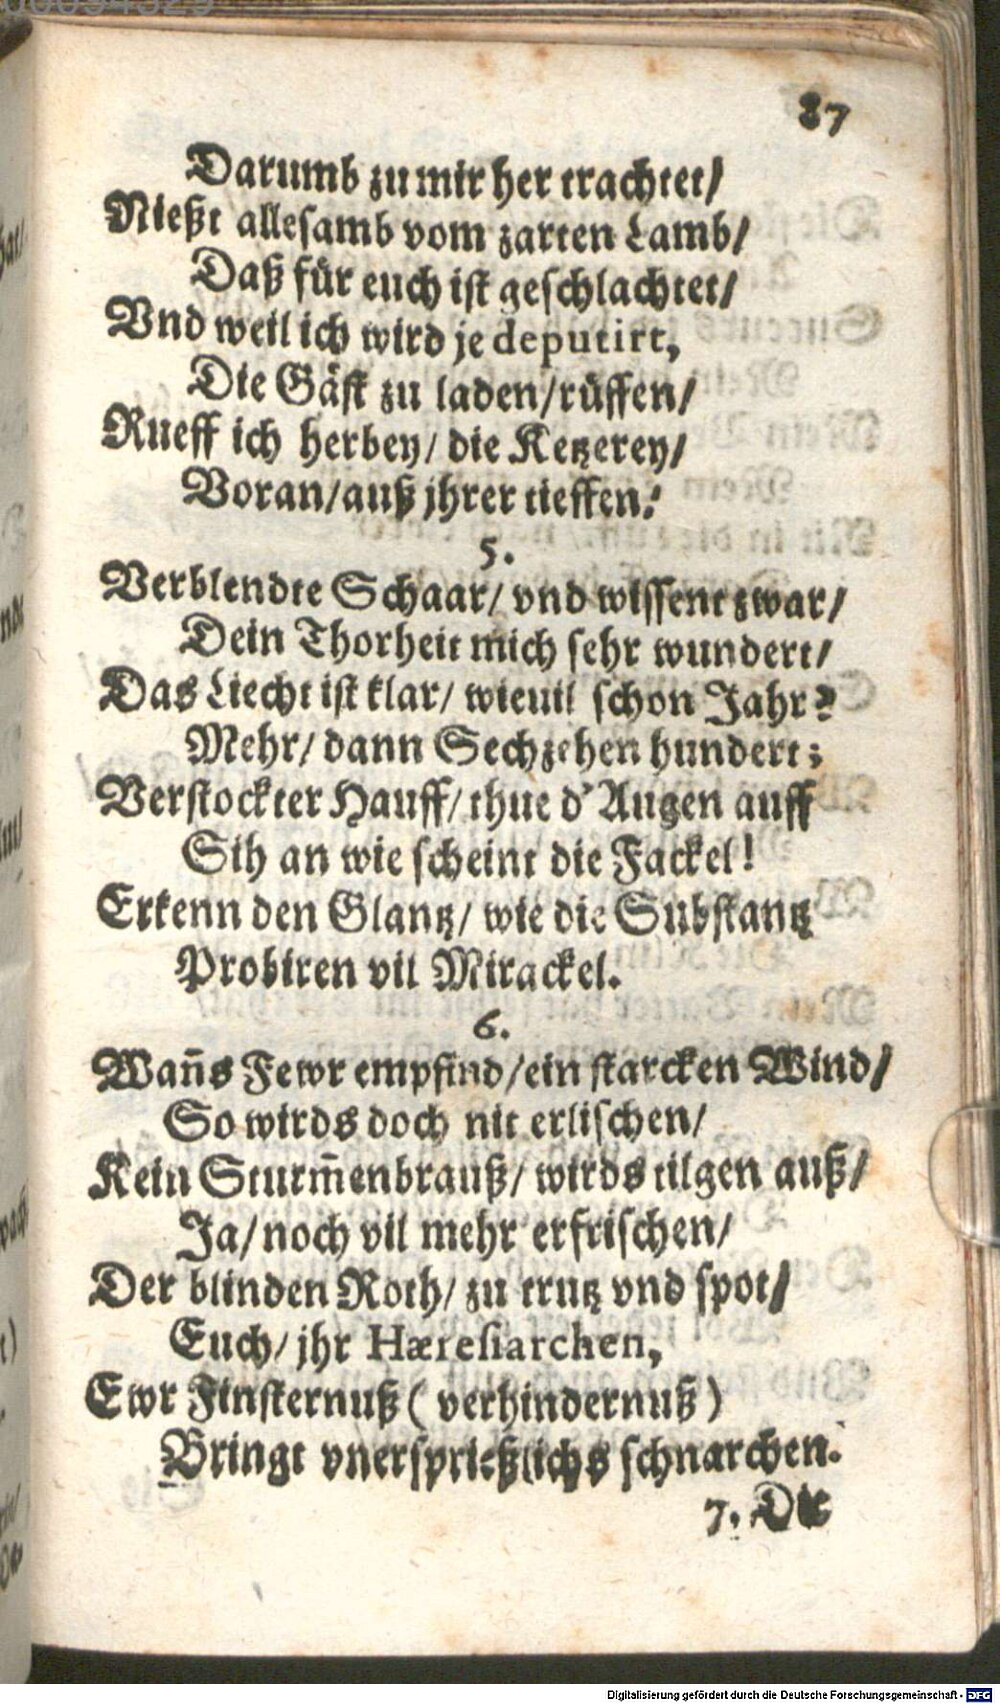 87
Darumb zu mir her trachtet/
Nießt allesamb vom zarten Lamb/
Daß für euch ist geschlachtet/
Vnd weil ich wird je deputirt,
Die Gäst zu laden/rüffen/
Rueff ich herbey/ die Ketzerey/
Voran/auß jhrer tieffen:
5.
Verblendte Schaar/ vnd wissent zwar/
Dein Thorheit mich sehr wundert/
Das Liecht ist klar/ wieuil schon Jahr?
Mehr/ dann Sechzehen hundert:
Verstockter Hauff/ thue d'Augen auff
Sih an wie scheint die Fackel!
Erkenn den Glantz/ wie die Substantz
Probiren vil Mirackel.
6.
Wañs Fewr empfind/ein starcken Wind/
So wirds doch nit erlischen/
Kein Sturm̃enbrauß/ wirds tilgen auß/
Ja/noch vil mehr erfrischen/
Der blinden Roth/ zu trutz vnd spot/
Euch/ jhr Hæresiarchen,
Ewr Finsternuß ( verhindernuß )
Bringt vnersprießlichs schnarchen.
7. Die
Digitalisierung gefördert durch die Deutsche Forschungsgemeinschaft - DFG